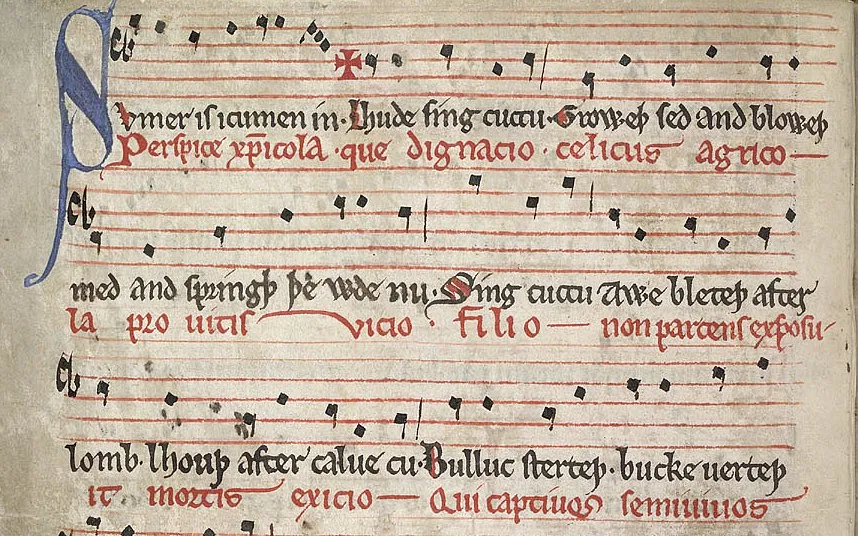 Sumer is icumen in· Lhude sing cuccu· Groweþ sed and bloweþ
Perspice xp̅icola· que dignacio· celicus agrico
med and springþ þe wde nu· Sing cuccu Awe bleteþ after
la pro uitis vicio· filio non parcens exposu
lomb· lhouþ after calue cu· Bulluc sterteþ· bucke uerteþ
it mortis exicio Qui captiuos semiuiuos